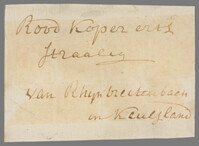 Rood Koper erts
straalig
van Rhynbreitenbach
in Keulsland